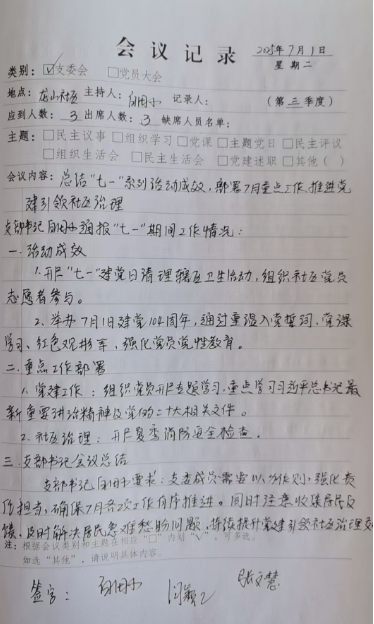 会议记录
2025年7月1日
星期二
类别：☑支委会 □党员大会
地点：龙山社区 主持人： 记录人： （第三季度）
应到人数：3 出席人数：3 缺席人员名单：
主题：□民主议事 □组织学习 □党课 □主题党日 □民主评议
□组织生活会 □民主生活会 □党建述职 □其他（ ）
会议内容：总结“七一”系列活动成效，部署7月重点工作，推进党
建引领社区治理
支部书记 通报“七一”期间工作情况：
一.活动成效
1.开展“七一”建党日清理辖区卫生活动，组织社区党员
志愿者参与。
2.举办7月1日建党104周年，通过重温入党誓词，党课
学习、红色观影等，强化党员党性教育。
二.重点工作部署
1.党建工作：组织党员开展专题学习，重点学习习近平总书记最
新重要讲话精神及党的二十大相关文件。
2.社区治理：开展夏季消防安全检查。
三.支部书记会议总结
支部书记 要求：支委成员需要以身作则，强化责
任担当，确保7月各项工作有序推进。同时注意收集居民反
馈，及时解决居民急难愁盼问题，持续提升党建引领社区治理
注：根据会议类别和主题在相应“□”内划“√”，可多选。
如选“其他”，请说明具体内容。
签字： 张文慧